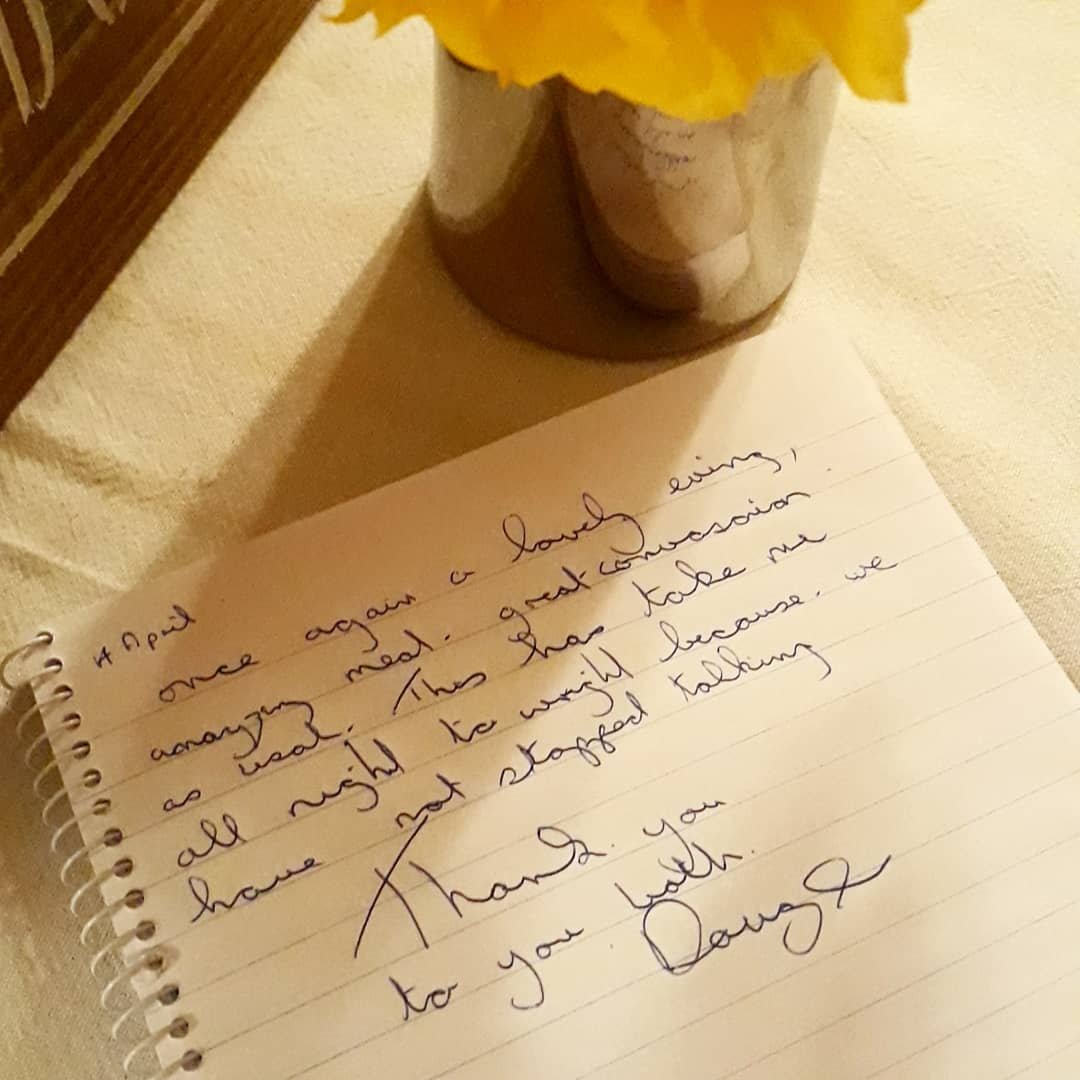 April
once again a lovely evining,
amazing meal. great convosaion
as usal. This has take me
all night to wright because. we
have not stopped talking
Thank you
to you both.
Doug